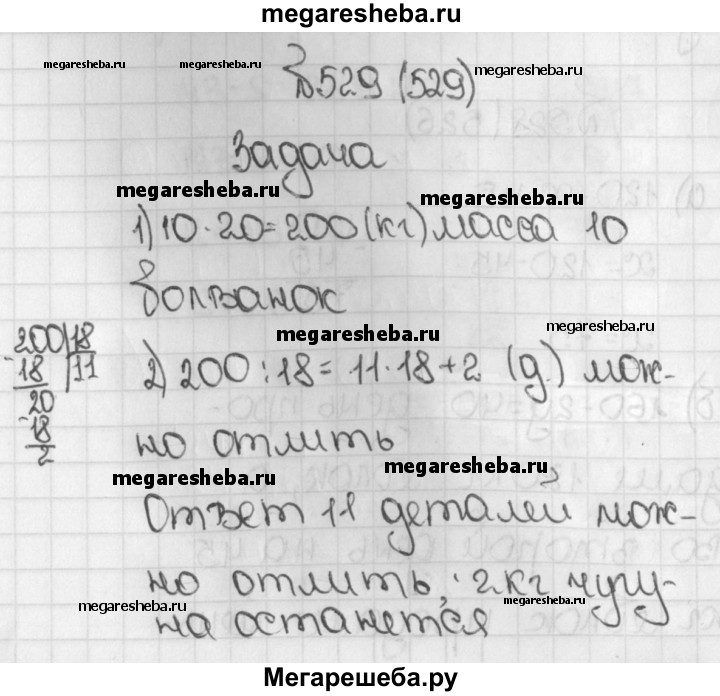 megaresheba.ru
megaresheba.ru megaresheba.ru megaresheba.ru
№529 (529)
Задача
megaresheba.ru megaresheba.ru
1) 10·20=200(кг) масса 10
болванок
megaresheba.ru megaresheba.ru
200|18
-18 |11
20
-18
2
2) 200:18=11·18+2 (д.) мож-
но отлить
megaresheba.ru megaresheba.ru
Ответ 11 деталей мож-
но отлить, 2кг чугу-
megaresheba.ru megaresheba.ru
на останется
Мегарешеба.ру